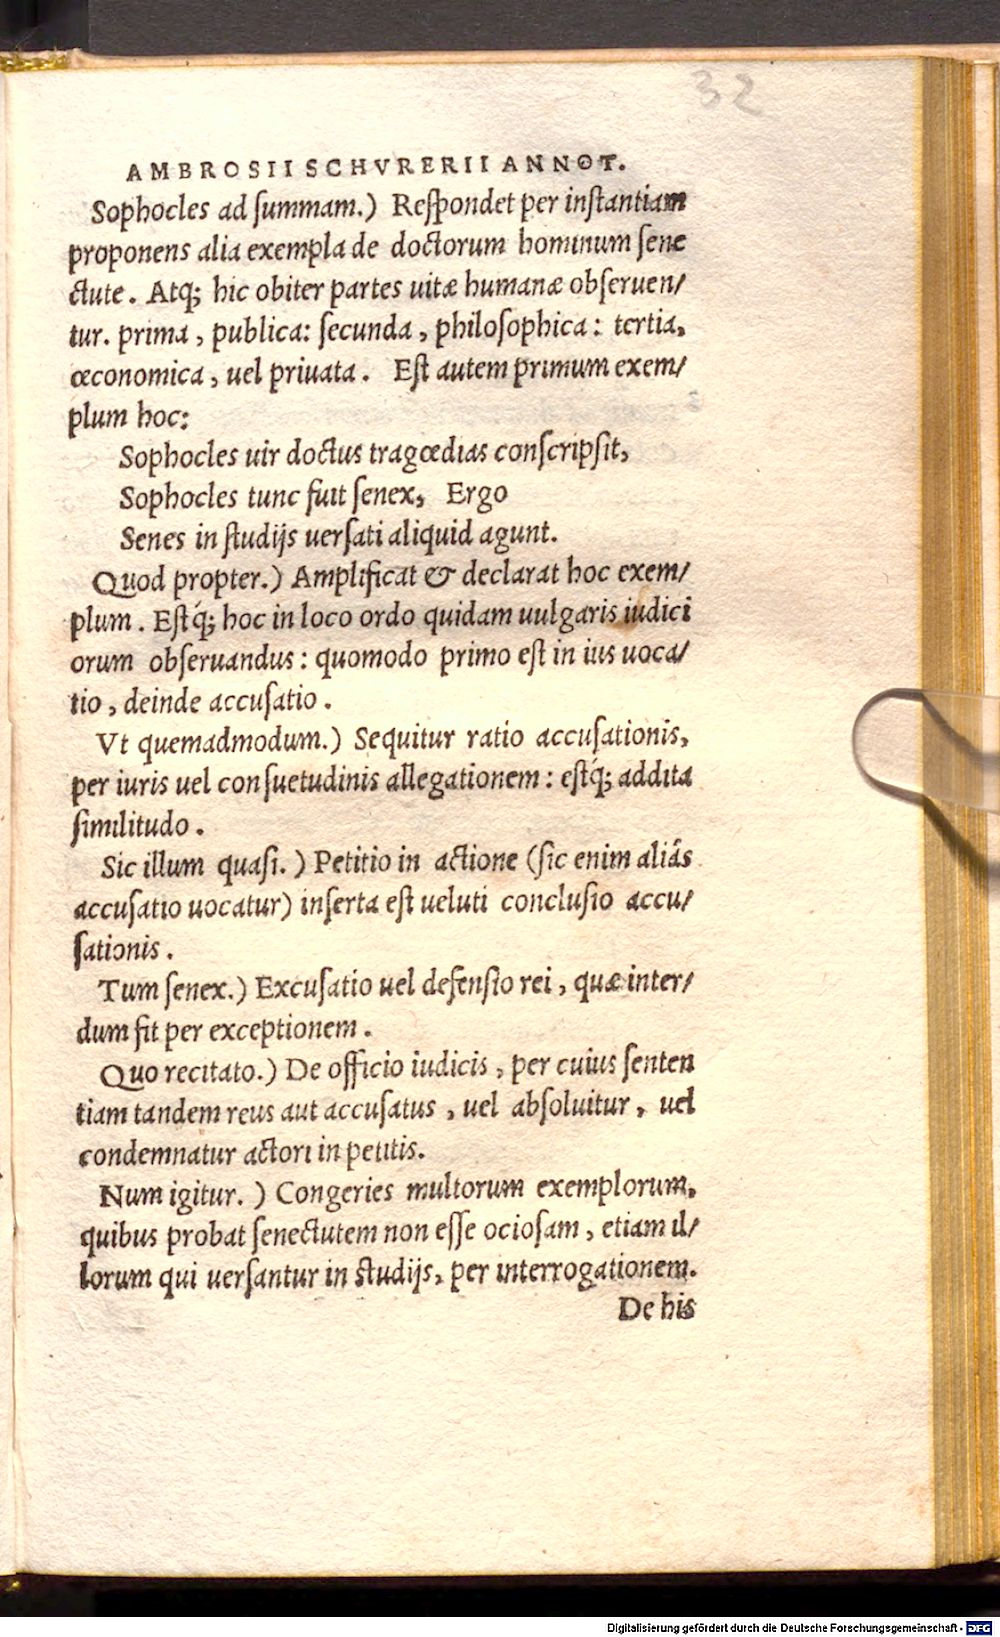 32
AMBROSII SCHVRERII ANNOT.
Sophocles ad ſummam.) Reſpondet per inſtantiam
proponens alia exempla de doctorum hominum ſene
ctute. Atq; hic obiter partes uitæ humanæ obſeruen/
tur. prima, publica: ſecunda, philoſophica: tertia,
œconomica, uel priuata. Eſt autem primum exem/
plum hoc:
Sophocles uir doctus tragœdias conſcripſit,
Sophocles tunc fuit ſenex, Ergo
Senes in ſtudijs uerſati aliquid agunt.
Quod propter.) Amplificat & declarat hoc exem/
plum. Eſtq́; hoc in loco ordo quidam uulgaris iudici
orum obſeruandus: quomodo primo eſt in ius uoca/
tio, deinde accuſatio.
Vt quemadmodum.) Sequitur ratio accuſationis,
per iuris uel conſuetudinis allegationem: eſtq́; addita
ſimilitudo.
Sic illum quaſi.) Petitio in actione (ſic enim aliâs
accuſatio uocatur) inſerta eſt ueluti concluſio accu/
ſationis.
Tum ſenex.) Excuſatio uel defenſio rei, quæ inter/
dum fit per exceptionem.
Quo recitato.) De officio iudicis, per cuius ſenten
tiam tandem reus aut accuſatus, uel abſoluitur, uel
condemnatur actori in petitis.
Num igitur.) Congeries multorum exemplorum,
quibus probat ſenectutem non eſſe ocioſam, etiam il/
lorum qui uerſantur in ſtudijs, per interrogationem.
De his
Digitalisierung gefördert durch die Deutsche Forschungsgemeinschaft - DFG